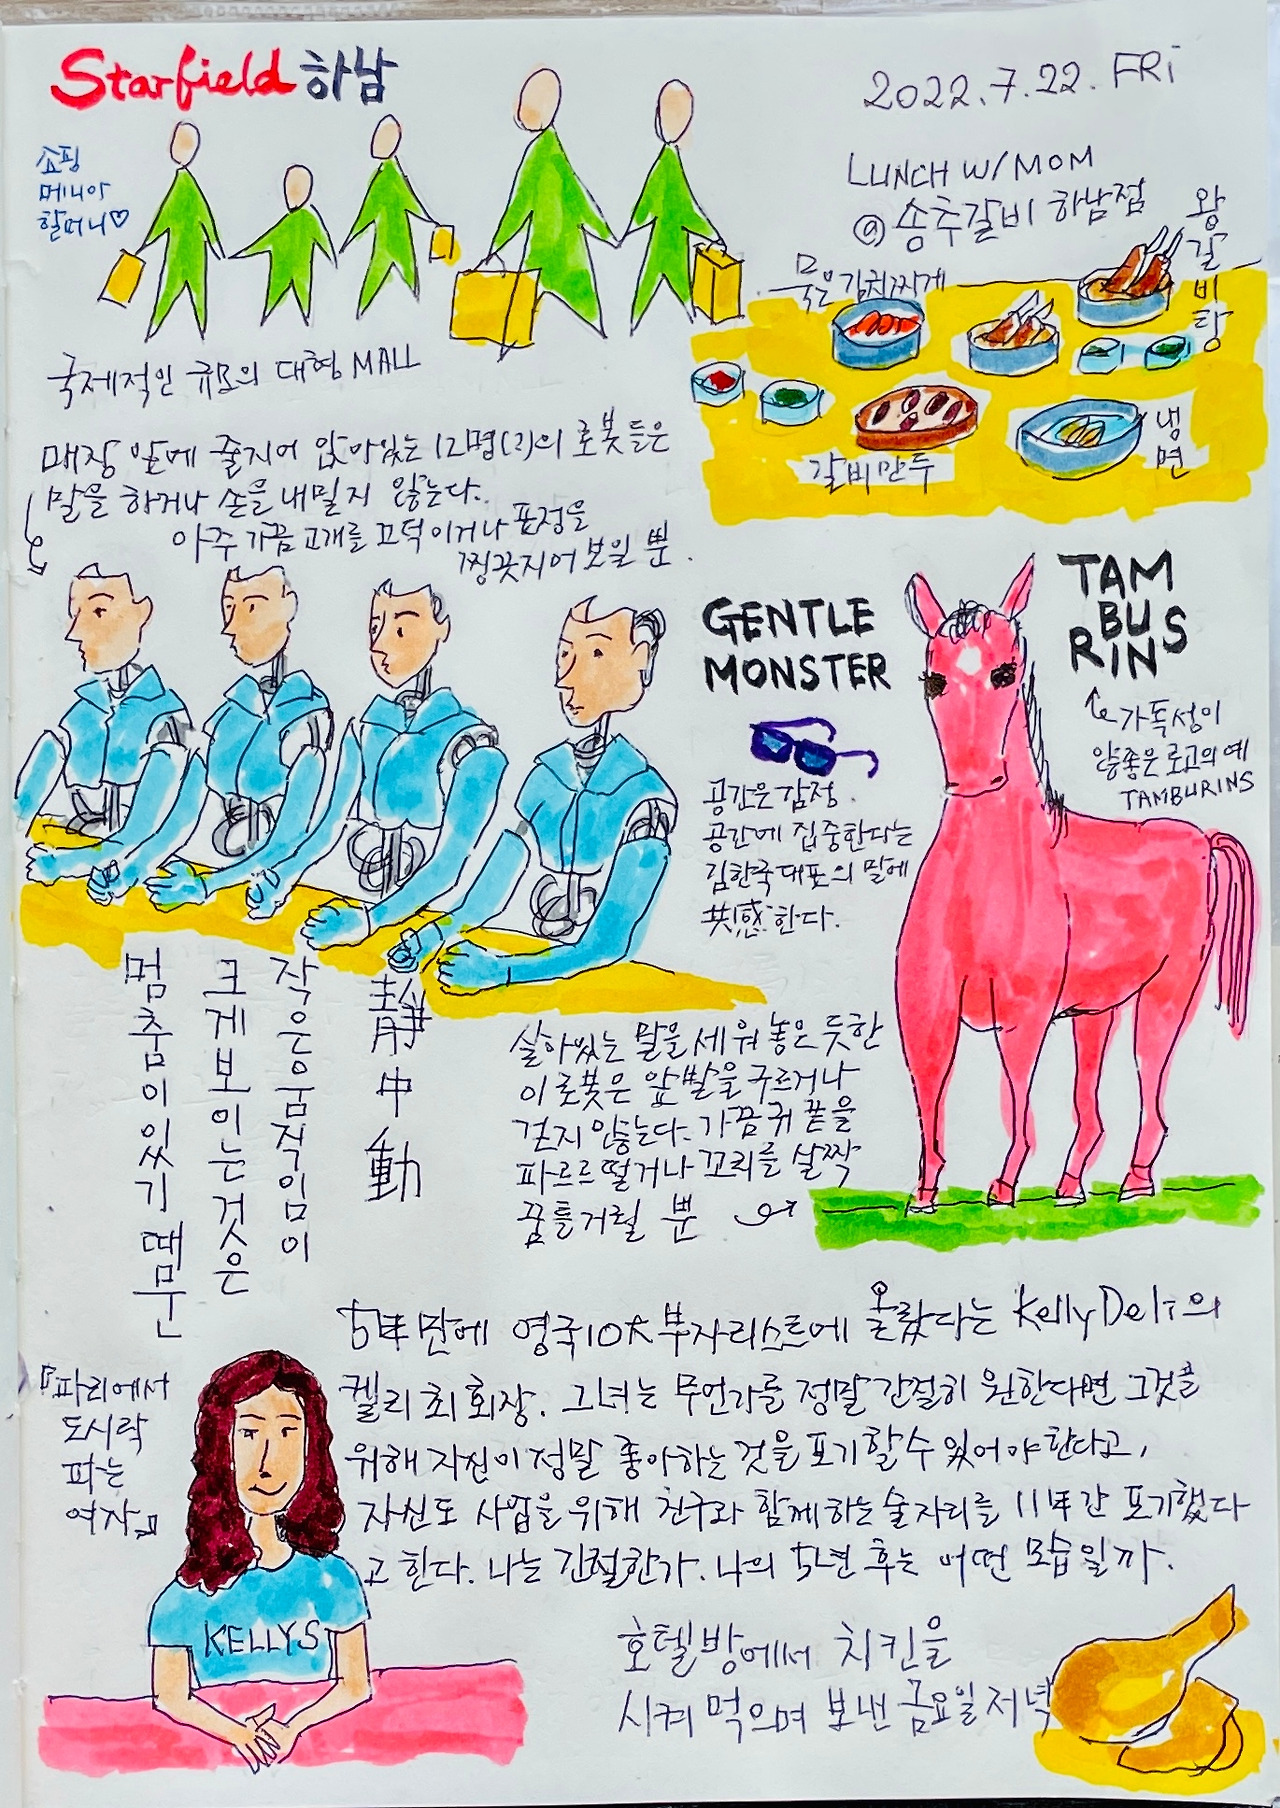 Starfield 하남
2022.7.22. FRi
쇼핑
매니아
할머니♡
LUNCH W/MOM
@송추갈비 하남점
묵은김치찌개
왕갈비탕
갈비만두
냉면
국제적인 규모의 대형 MALL
매장 앞에 줄지어 앉아있는 12명(?)의 로봇들은
말을 하거나 손을 내밀지 않는다.
아주 가끔 고개를 끄덕이거나 표정을
찡긋지어 보일 뿐.
GENTLE
MONSTER
공간은 감정.
공간에 집중한다는
김한국 대표의 말에
共感한다.
TAM
BU
RINS
가독성이
안좋은 로고의 예
TAMBURINS
靜中動
작은 움직임이
크게 보이는 것은
멈춤이 있기 때문
살아있는 말을 세워 놓은 듯한
이 로봇은 앞발을 구르거나
걷지 않는다. 가끔 귀 끝을
파르르 떨거나 꼬리를 살짝
꿈틀거릴 뿐
5年만에 영국10大부자리스트에 올랐다는 KellyDeli의
켈리 최 회장. 그녀는 무언가를 정말 간절히 원한다면 그것을
위해 자신이 정말 좋아하는 것을 포기할 수 있어야 한다고,
자신도 사업을 위해 친구와 함께하는 술자리를 11年간 포기했다
고 한다. 나는 간절한가. 나의 5년 후는 어떤 모습일까.
『파리에서
도시락
파는
여자』
KELLYS
호텔방에서 치킨을
시켜 먹으며 보낸 금요일 저녁